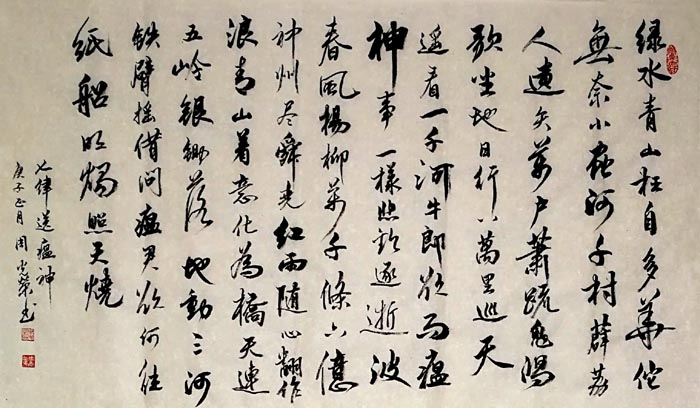 绿水青山枉自多華佗
無奈小虫何千村薜荔
人遗矢萬户蕭疏鬼唱
歌坐地日行八萬里巡天
遥看一千河牛郎欲问瘟
神事一樣悲歡逐逝波
春風楊柳萬千條六億
神州尽舜尧红雨随心翻作
浪青山着意化為橋天連
五岭银锄落地動三河
铁臂摇借问瘟君欲何往
纸船明烛照天燒
七律送瘟神
庚子正月周光荣书